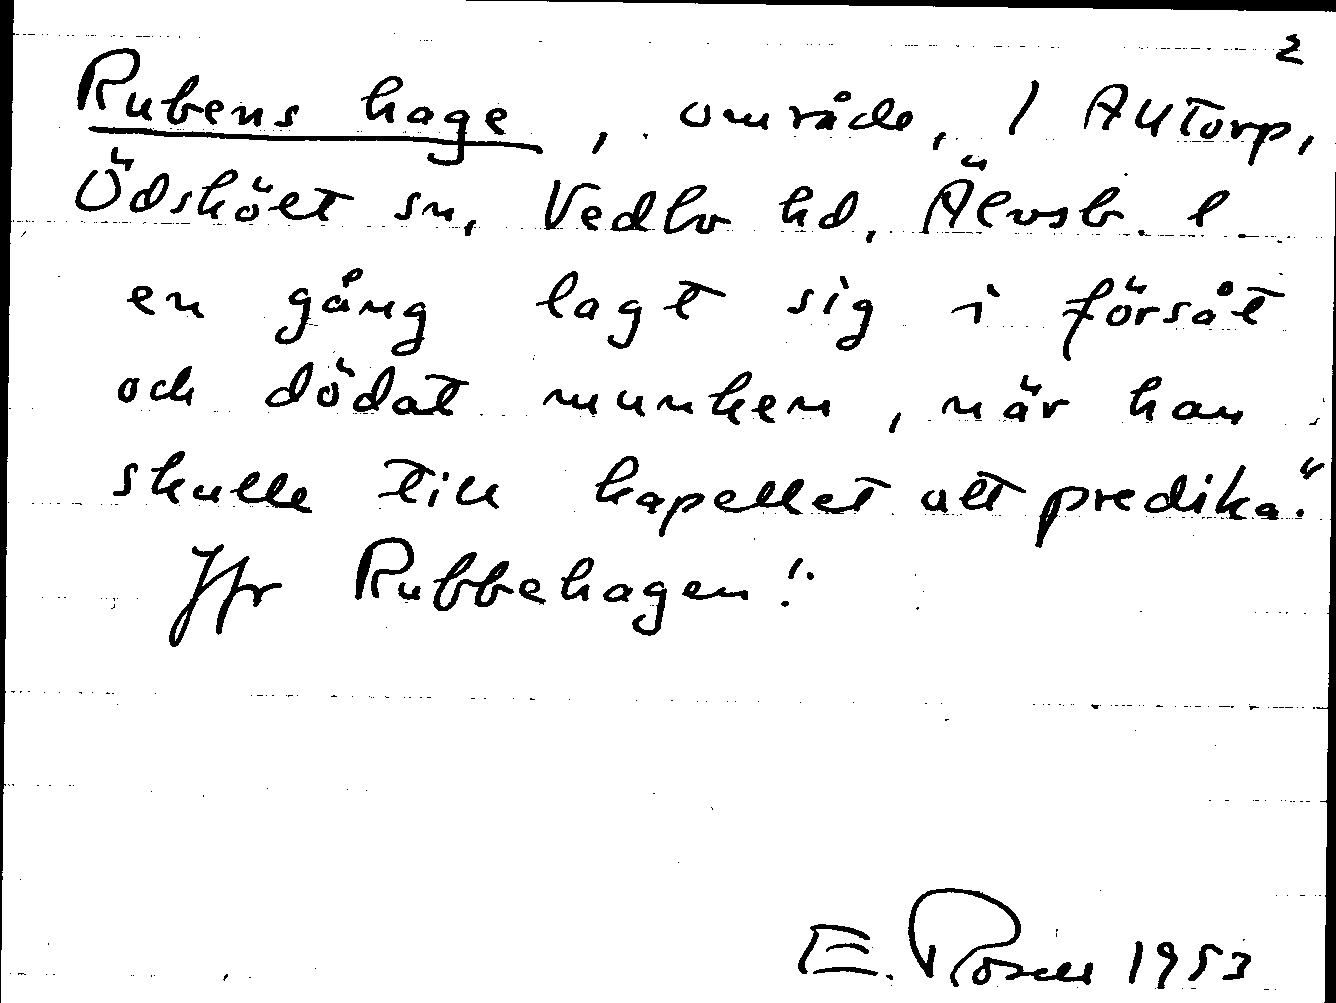 2
Rubens hage, område, / Alltorp,
Ödskölt sn, Vedbo hd, Älvsb. l.
en gång lagt sig i försåt
och dödat munken, när han
skulle till kapellet att predika."
Jfr Rubbehagen!
E. Rosell 1953